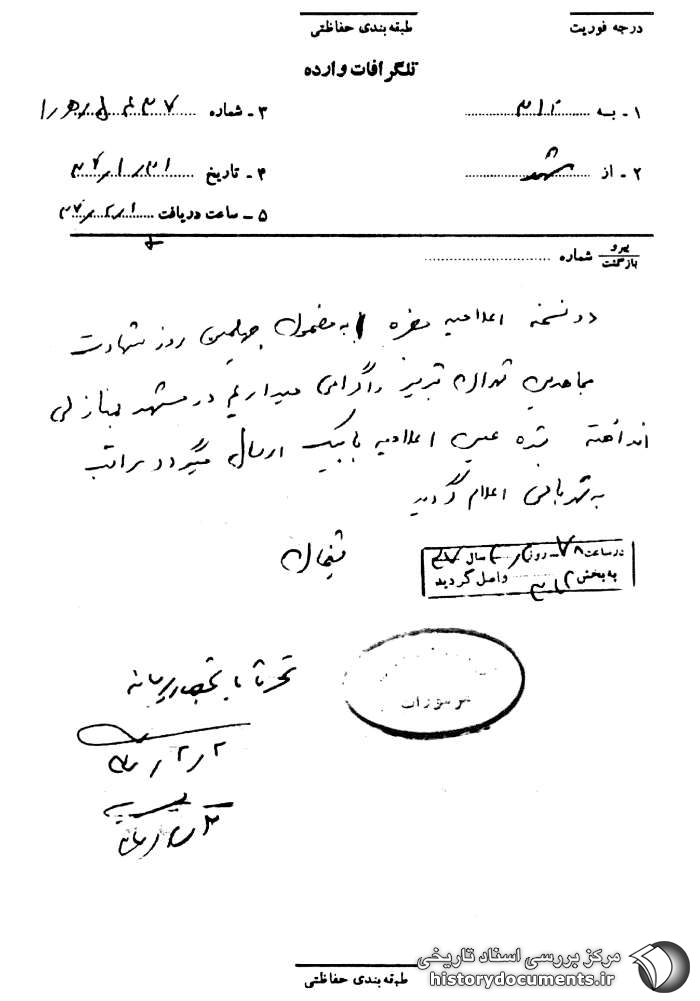 درجه فوریت
طبقه‌بندی حفاظتی
تلگرافات وارده
۱ - به ۳۱۲
۳ - شماره
۲ - از مشهد
۴ - تاریخ ۳۷/۱/۳۱
۵ - ساعت دریافت
پیرو
بازگشت شماره
دو نسخه اعلامیه مضره به مضمون چهلمین روز شهادت
مجاهدین تبریز را گرامی میداریم در مشهد بمنازلی
انداخته شده عین اعلامیه با پیک ارسال میگردد مراتب
به شهربانی اعلام گردید
شیخان
در ساعت ۸ روز سال
به بخش ۳۱۲ واصل گردید
مرموزات
۲/۲
طبقه‌بندی حفاظتی
مرکز بررسی اسناد تاریخی
historydocuments.ir